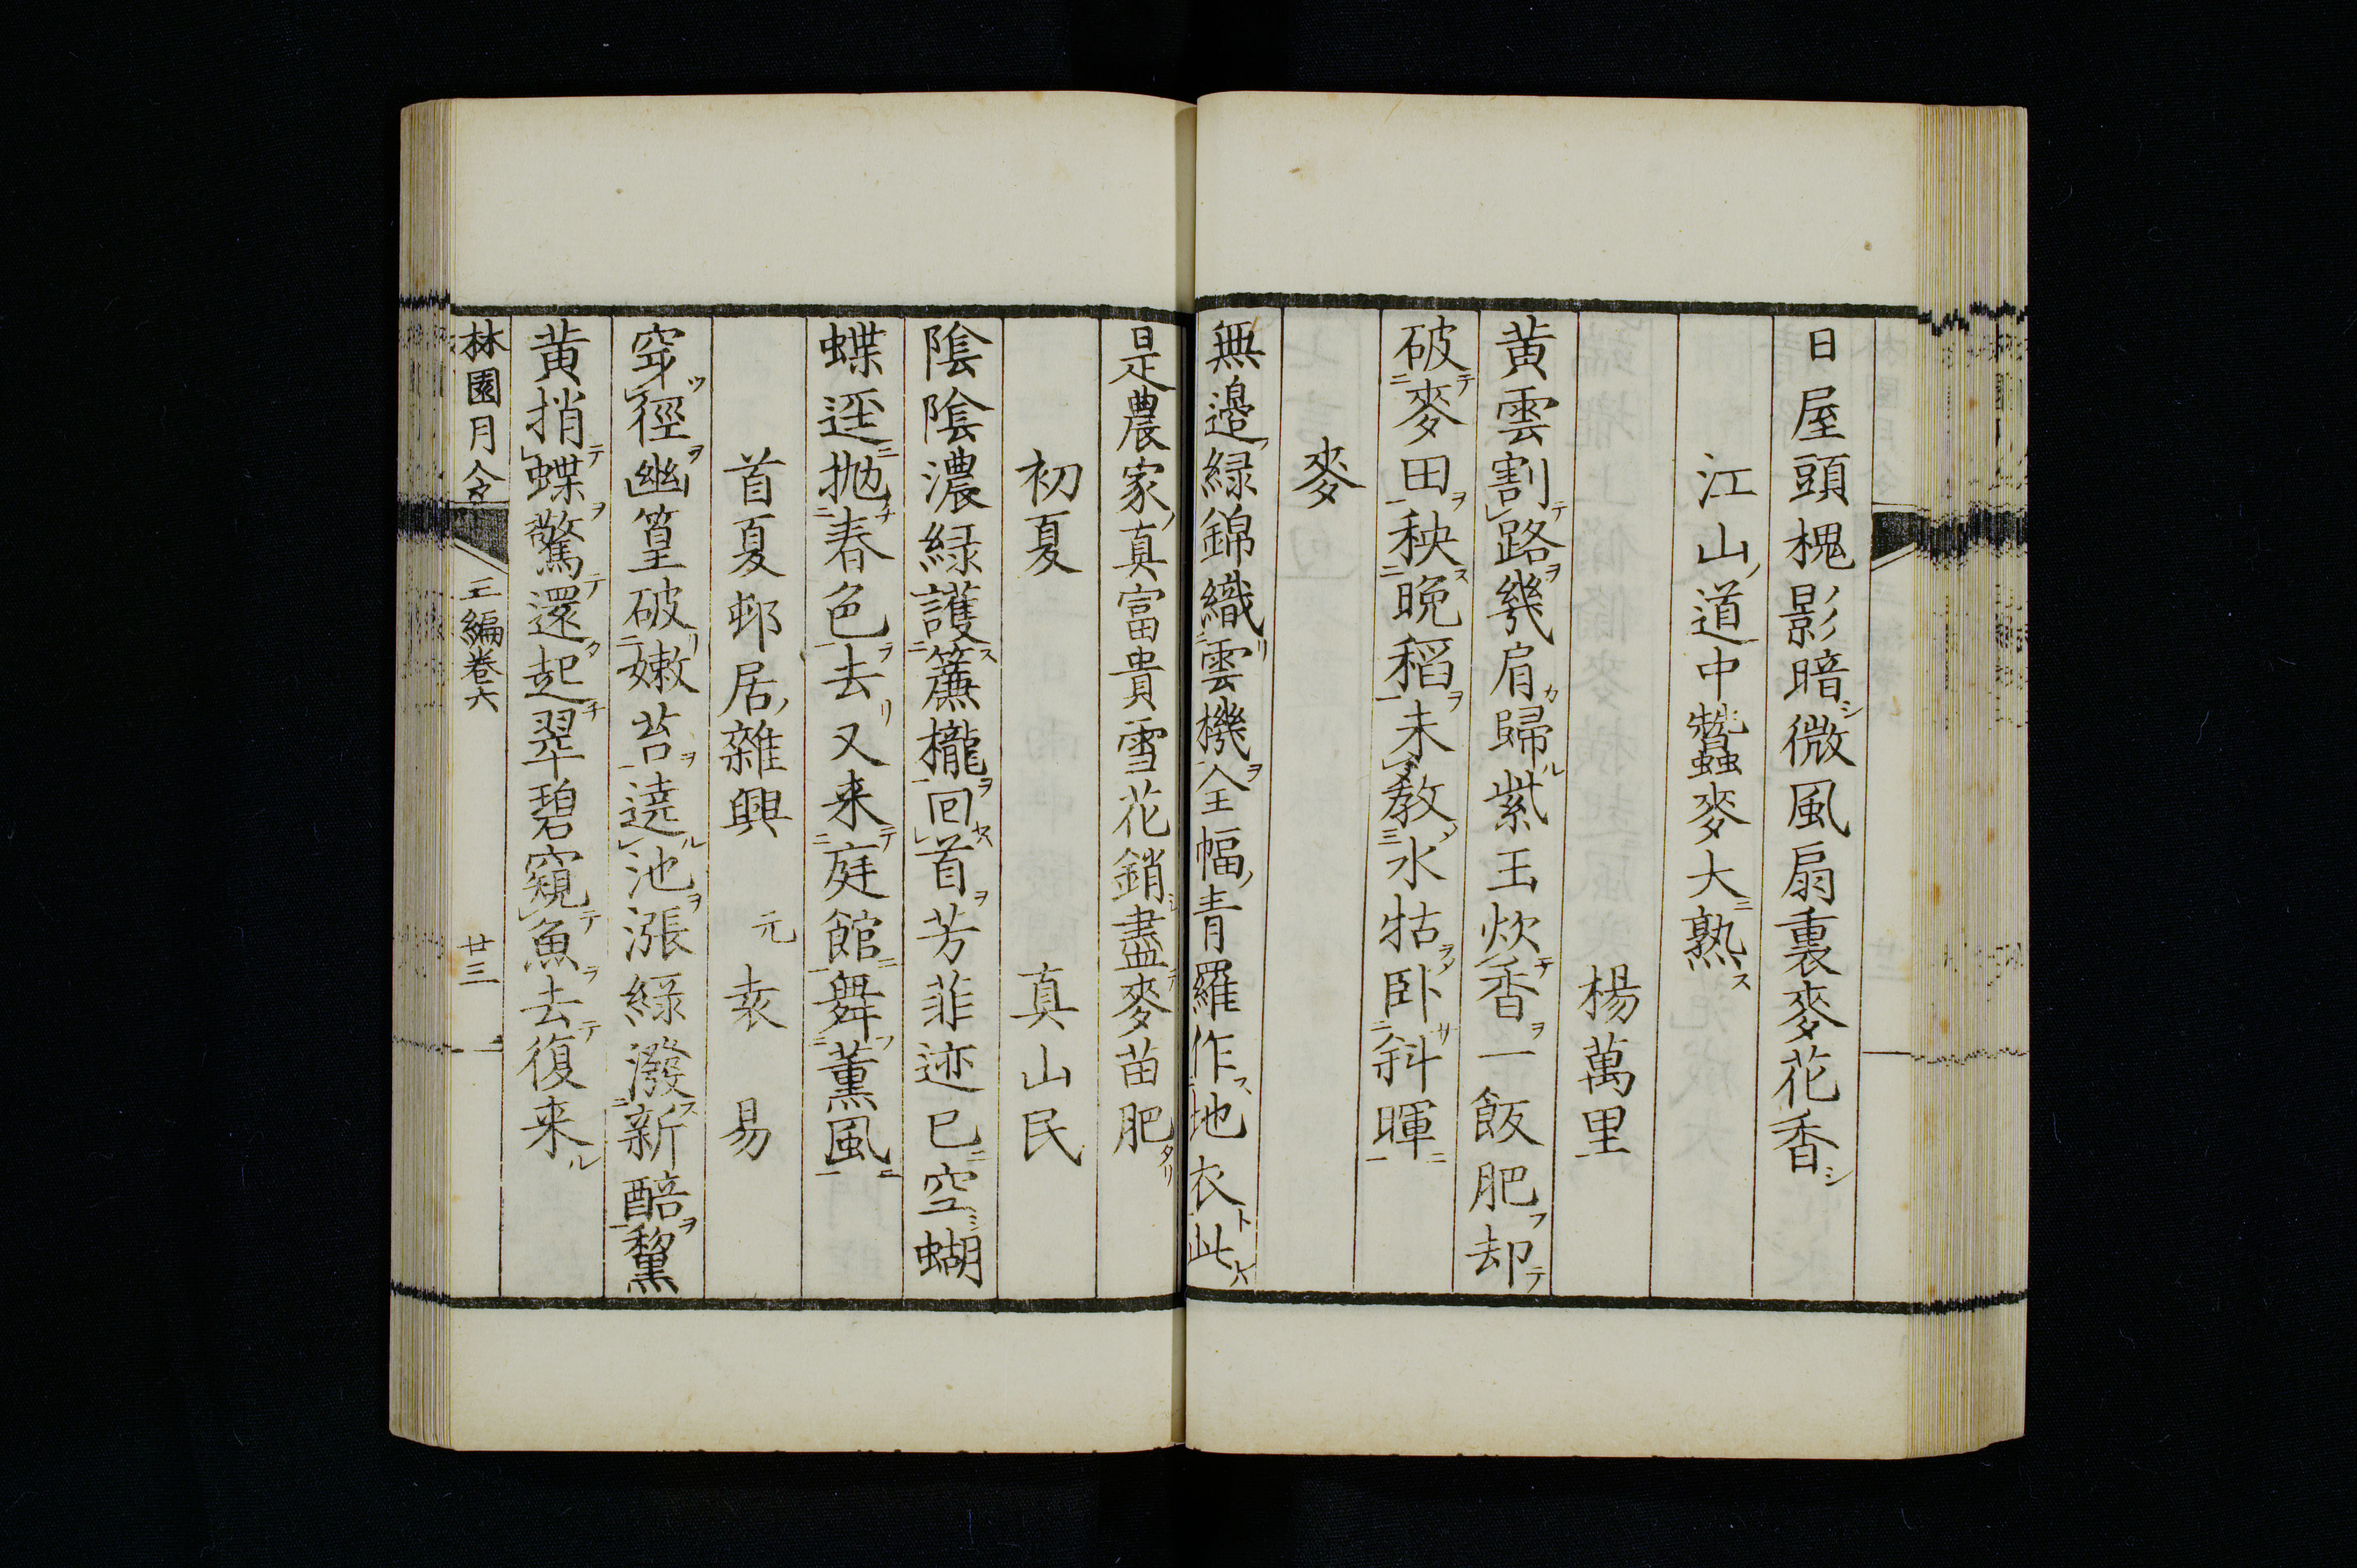 日屋頭槐影暗微風扇裏麥花香
江山道中蠶麥大熟
楊萬里
黄雲割路幾肩歸紫玉炊香一飯肥却
破麥田秧晩稻未教水牯卧斜暉
麥
無邉緑錦織雲機全幅青羅作地衣此
是農家真富貴雪花銷盡麥苗肥
初夏 真山民
陰陰濃緑護簾櫳回首芳菲迹已空蝴
蝶逕抛春色去又来庭館舞薫風
首夏邨居雜興 元 袁易
穿徑幽篁破嫩苔遶池漲緑潑新醅黧
黄捎蝶驚還起翠碧窺魚去復来
林園月令 三編卷六 廿三